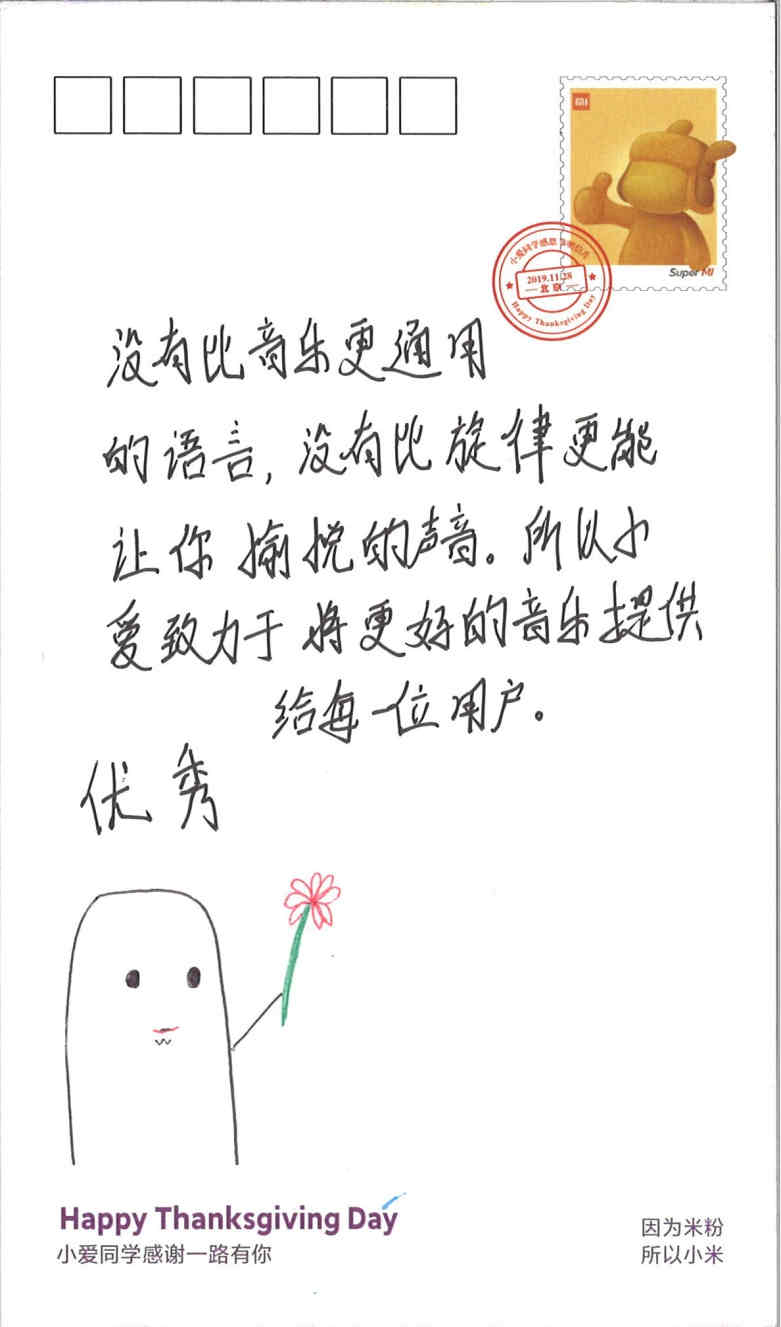 MI
Super MI
小爱同学感恩
2019.11.28
北京
Happy Thanksgiving Day
没有比音乐更通用
的语言,没有比旋律更能
让你愉悦的声音。所以小
爱致力于将更好的音乐提供
给每一位用户。
优秀
Happy Thanksgiving Day
小爱同学感谢一路有你
因为米粉
所以小米